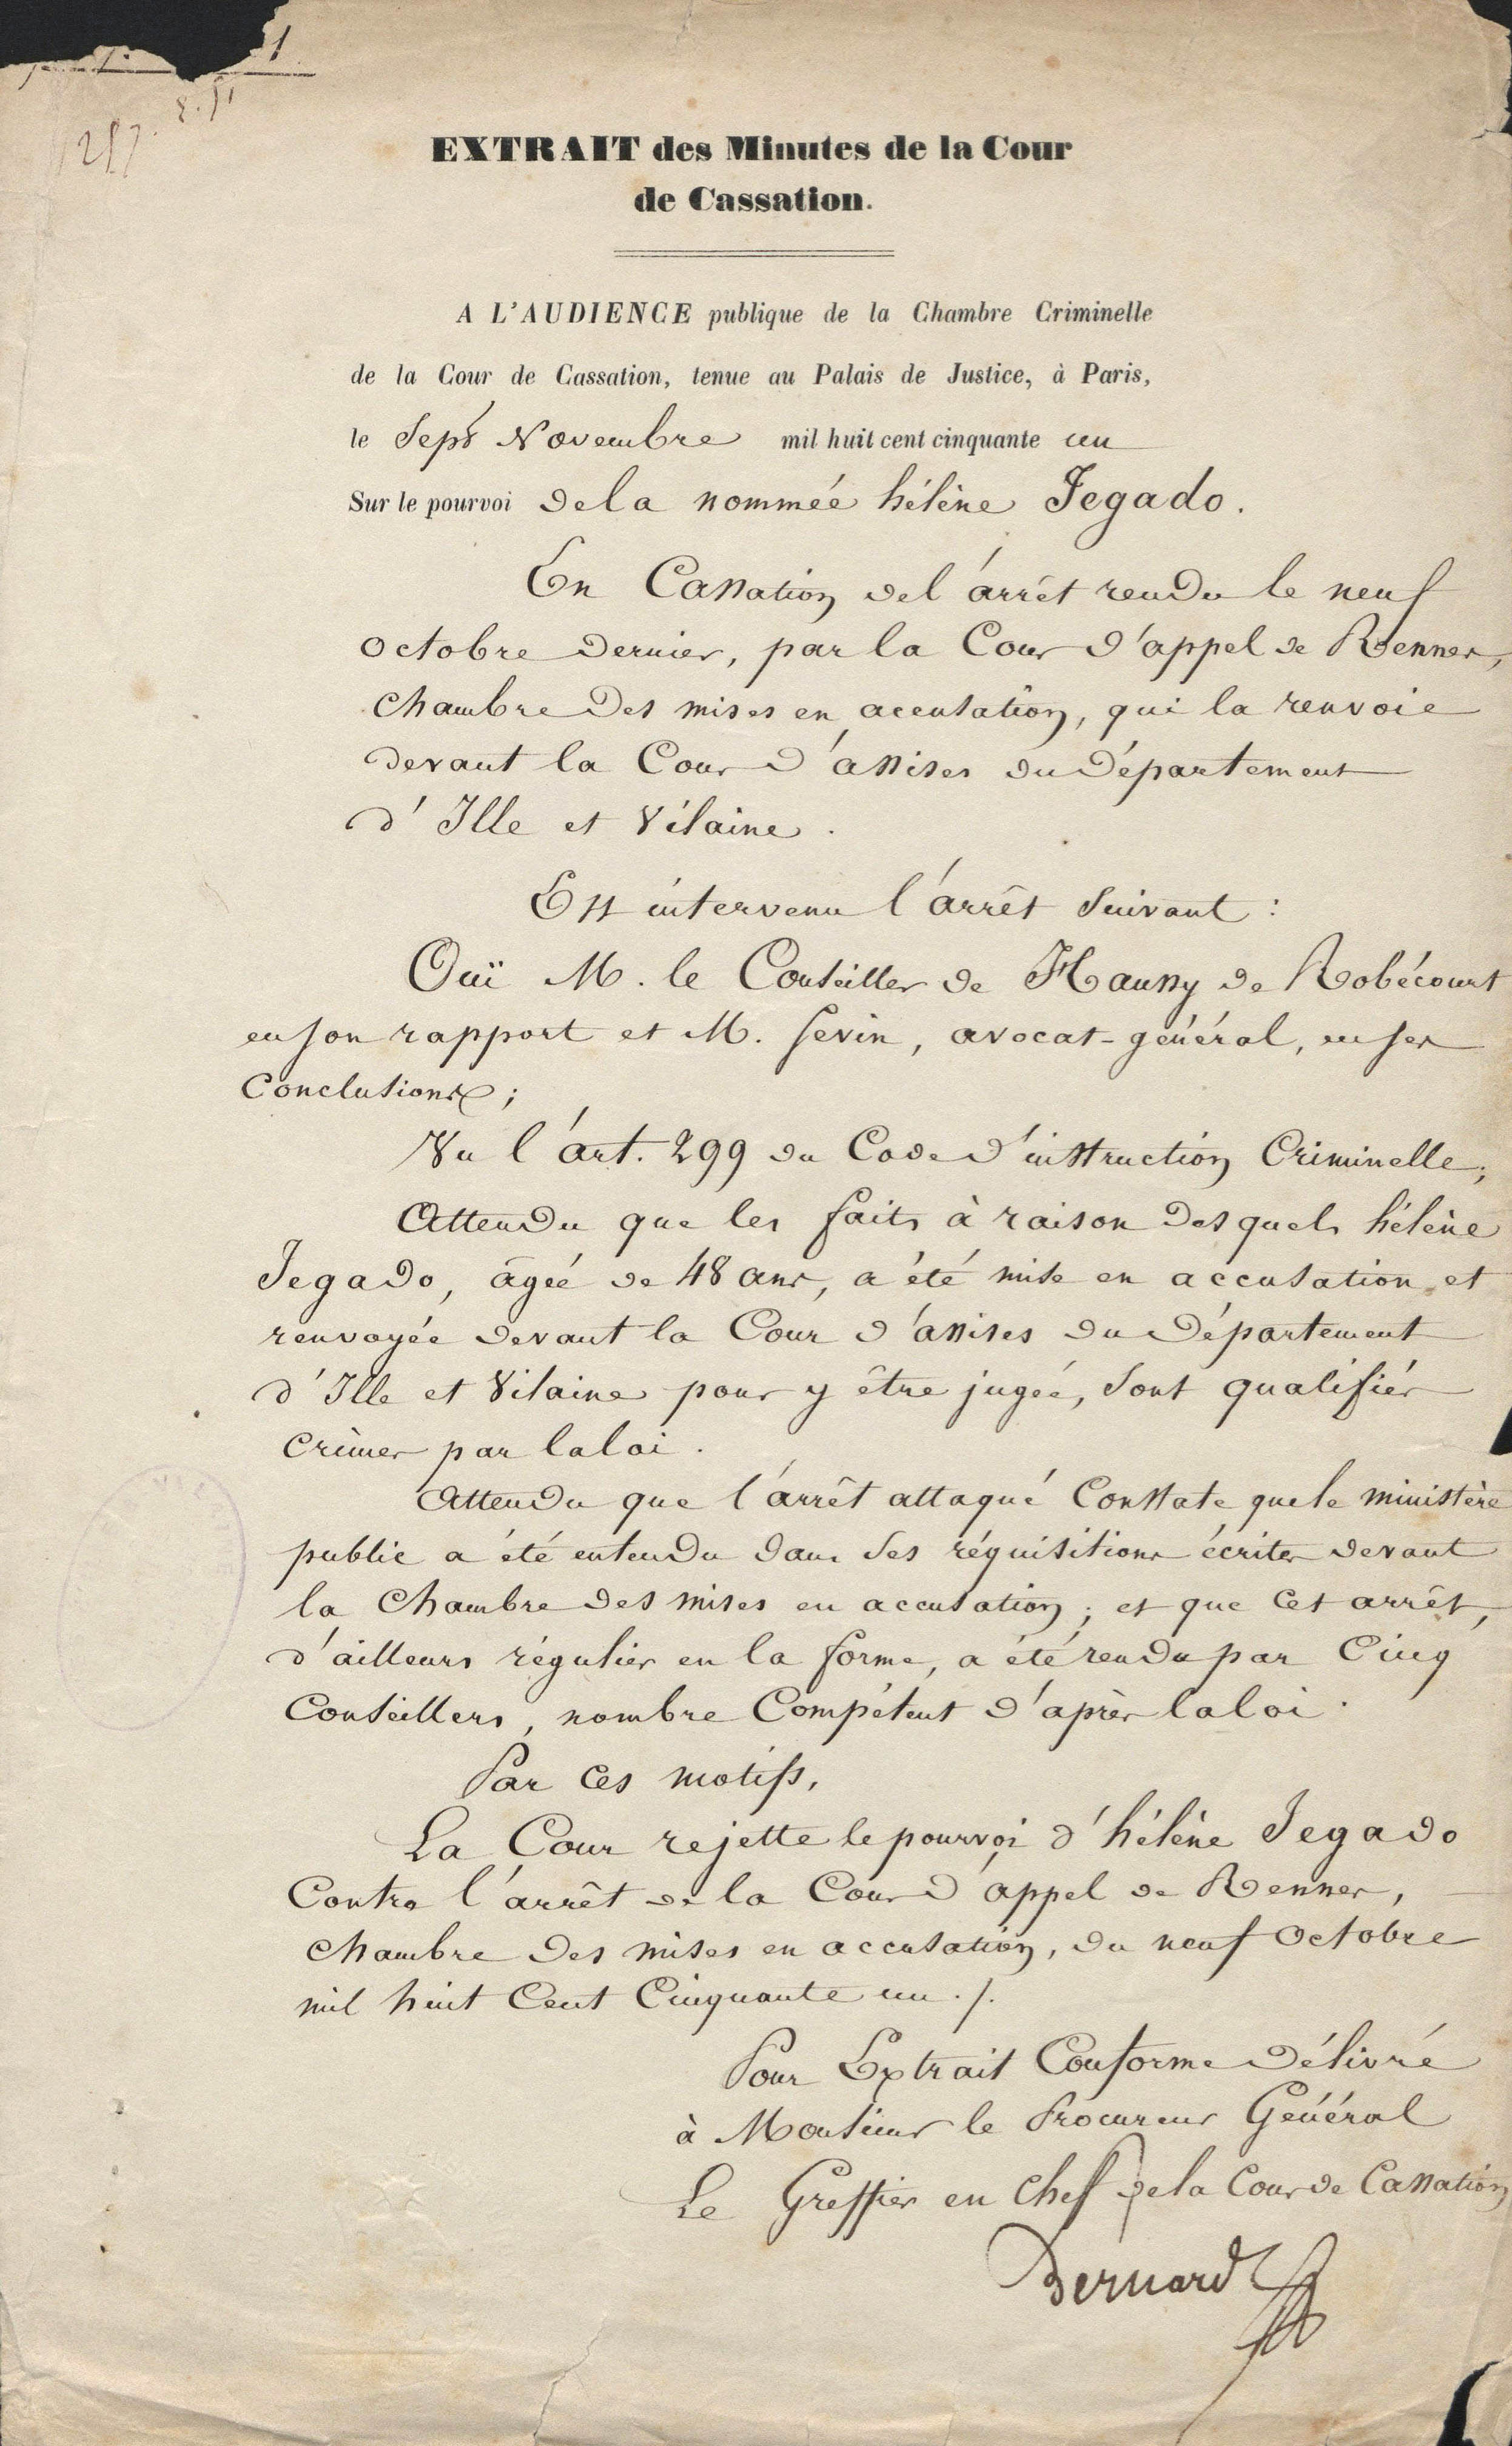 1
257.
EXTRAIT des Minutes de la Cour
de Cassation.
A L'AUDIENCE publique de la Chambre Criminelle
de la Cour de Cassation, tenue au Palais de Justice, à Paris,
le Sept Novembre mil huit cent cinquante un
Sur le pourvoi de la nommée hélène Jegado.
En Cassation de l'arrêt rendu le neuf
octobre dernier, par la Cour d'appel de Rennes,
chambre des mises en accusation, qui la renvoie
devant la Cour d'assises du Département
d'Ille et Vilaine.
Est intervenu l'arrêt suivant :
Ouï M. le Conseiller de Haussy de Robécourt
en son rapport et M. Sevin, avocat-général, en ses
Conclusions ;
Vu l'art. 299 du Code d'instruction Criminelle ;
Attendu que les faits à raison desquels hélène
Jegado, âgée de 48 ans, a été mise en accusation et
renvoyée devant la Cour d'assises du Département
d'Ille et Vilaine pour y être jugée, sont qualifiés
Crimes par la loi.
Attendu que l'arrêt attaqué Constate que le ministère
public a été entendu dans ses réquisitions écrites devant
la Chambre des mises en accusation ; et que cet arrêt,
d'ailleurs régulier en la forme, a été rendu par Cinq
Conseillers, nombre Compétent d'après la loi.
Par ces motifs,
La Cour rejette le pourvoi d'hélène Jegado
Contre l'arrêt de la Cour d'appel de Rennes,
chambre des mises en accusation, du neuf octobre
mil huit Cent Cinquante un ./.
Pour Extrait Conforme délivré
à Monsieur le Procureur Général
Le Greffier en Chef de la Cour de Cassation
Bernard